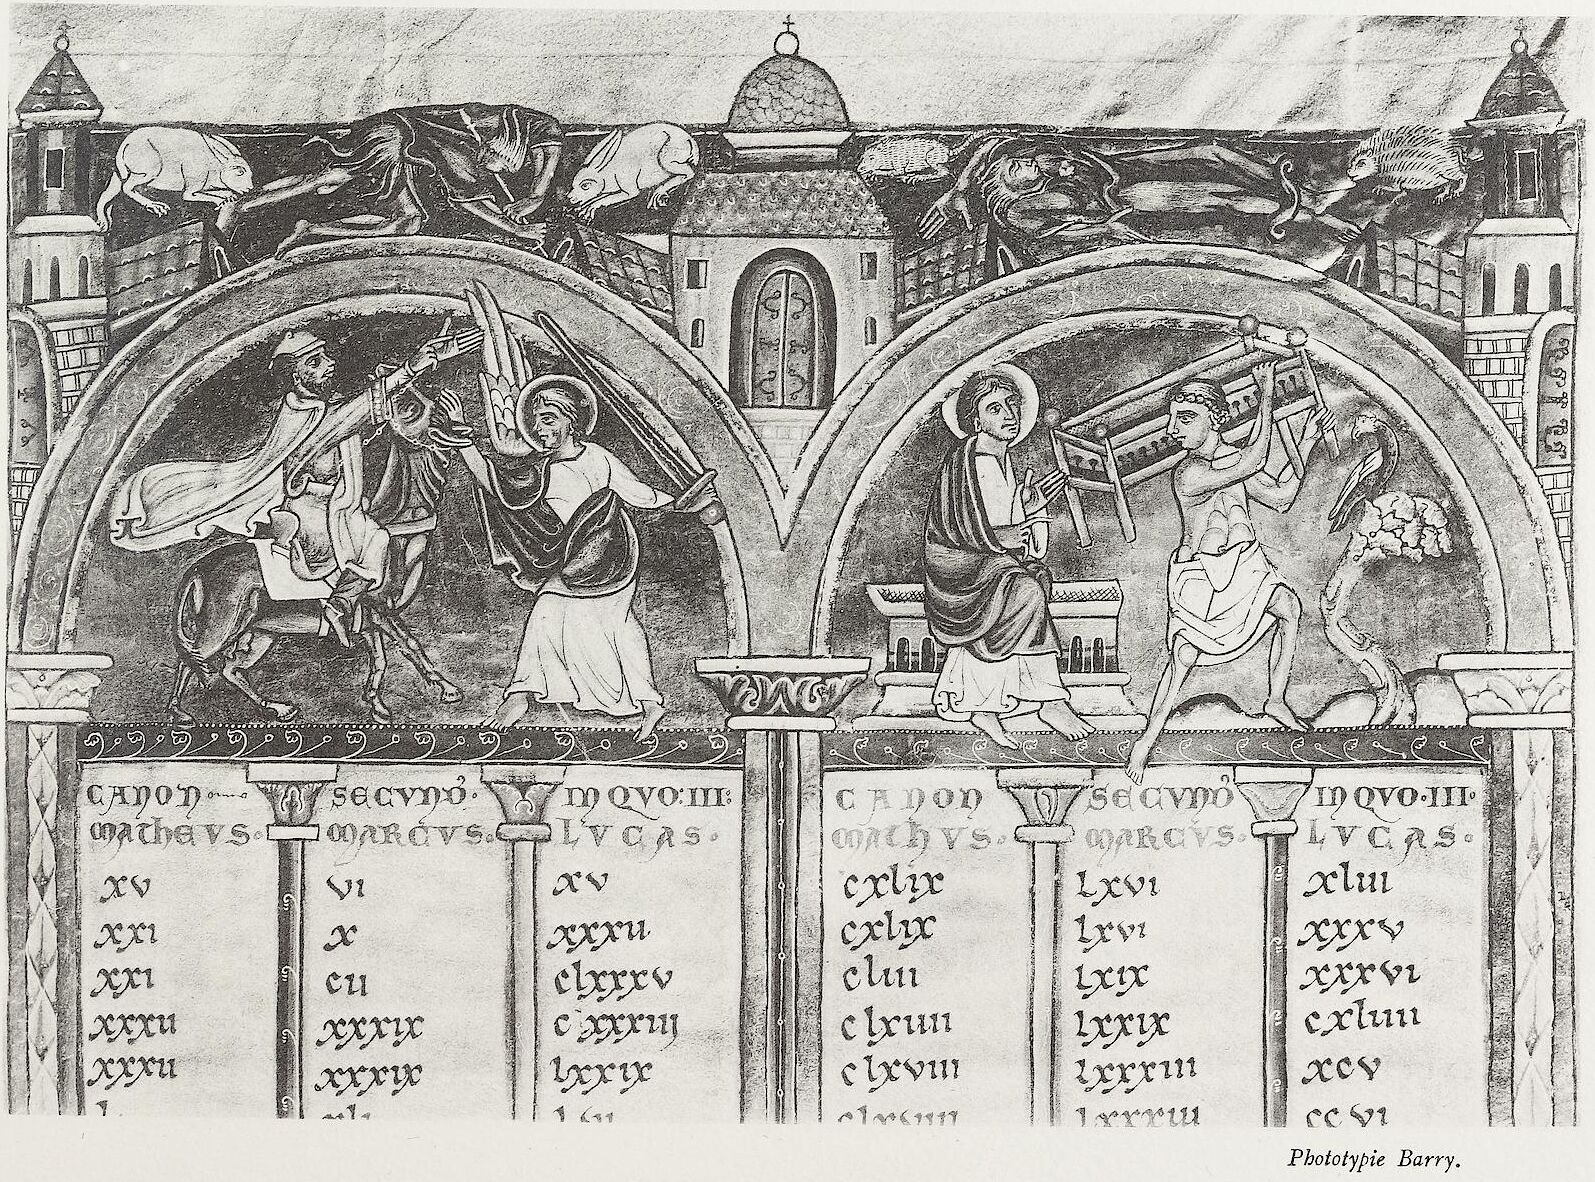 CANON SECVNDO· IN QVO:III:
MATHEVS· MARCVS· LVCAS·
xv vi xv
xxi x xxxii
xxi cii clxxxv
xxxii xxxix cxxxiij
xxxii xxxix lxxix
CANON SECVNDO IN QVO·III·
MATHVS· MARCVS· LVCAS·
cxlix lxvi xliii
cxlix lxvi xxxv
cliii lxix xxxvi
clxiiii lxxix cxliiii
clxviii lxxxiii xcv
lxxxiii ccvi
Phototypie Barry.